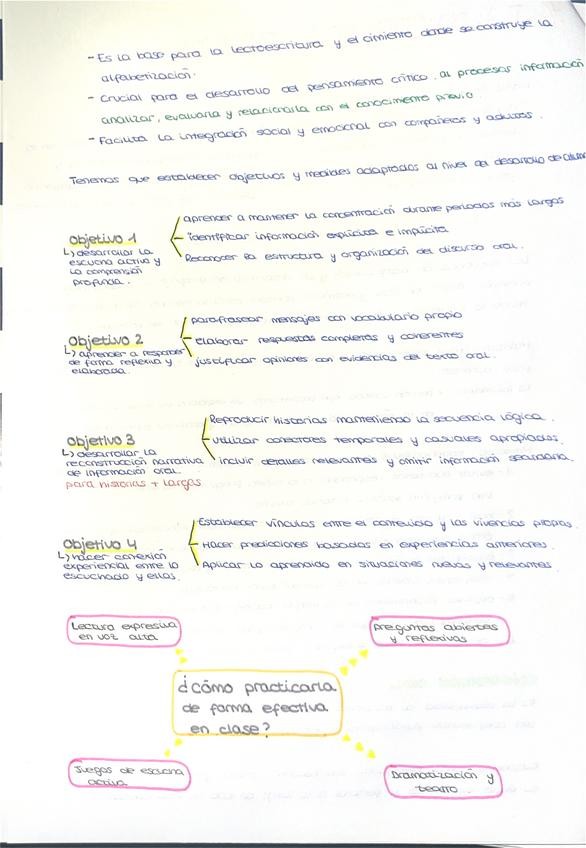 - Es la base para la lectoescritura y el cimiento donde se construye la
alfabetización.
- Crucial para el desarrollo del pensamiento crítico, al procesar información
analizar, evaluarla y relacionarla con el conocimiento previo
- Facilita la integración social y emocional con compañeros y adultos.
Tenemos que establecer objetivos y medidas adaptados al nivel del desarrollo de
Objetivo 1
↳ desarrollar la
escucha activa y
la comprensión
profunda.
aprender a mantener la concentración durante periodos más largos
identificar información explícita e implícita
Reconocer la estructura y organización del discurso oral.
Objetivo 2
↳ aprender a responder
de forma reflexiva y
elaborada.
parafrasear mensajes con vocabulario propio
elaborar respuestas completas y coherentes
justificar opiniones con evidencias del texto oral.
Objetivo 3
↳ desarrollar la
reconstrucción narrativa
de información oral.
para historias + largas
Reproducir historias manteniendo la secuencia lógica.
utilizar conectores temporales y casuales apropiados.
incluir detalles relevantes y omitir información secundaria.
Objetivo 4
↳ hacer conexión
experiencial entre lo
escuchado y ellos.
Establecer vínculos entre el contenido y las vivencias propias.
Hacer predicciones basadas en experiencias anteriores.
Aplicar lo aprendido en situaciones nuevas y relevantes.
Lectura expresiva
en voz alta
Preguntas abiertas
y reflexivas
¿cómo practicarla
de forma efectiva
en clase?
Juegos de escucha
activa
Dramatización y
teatro